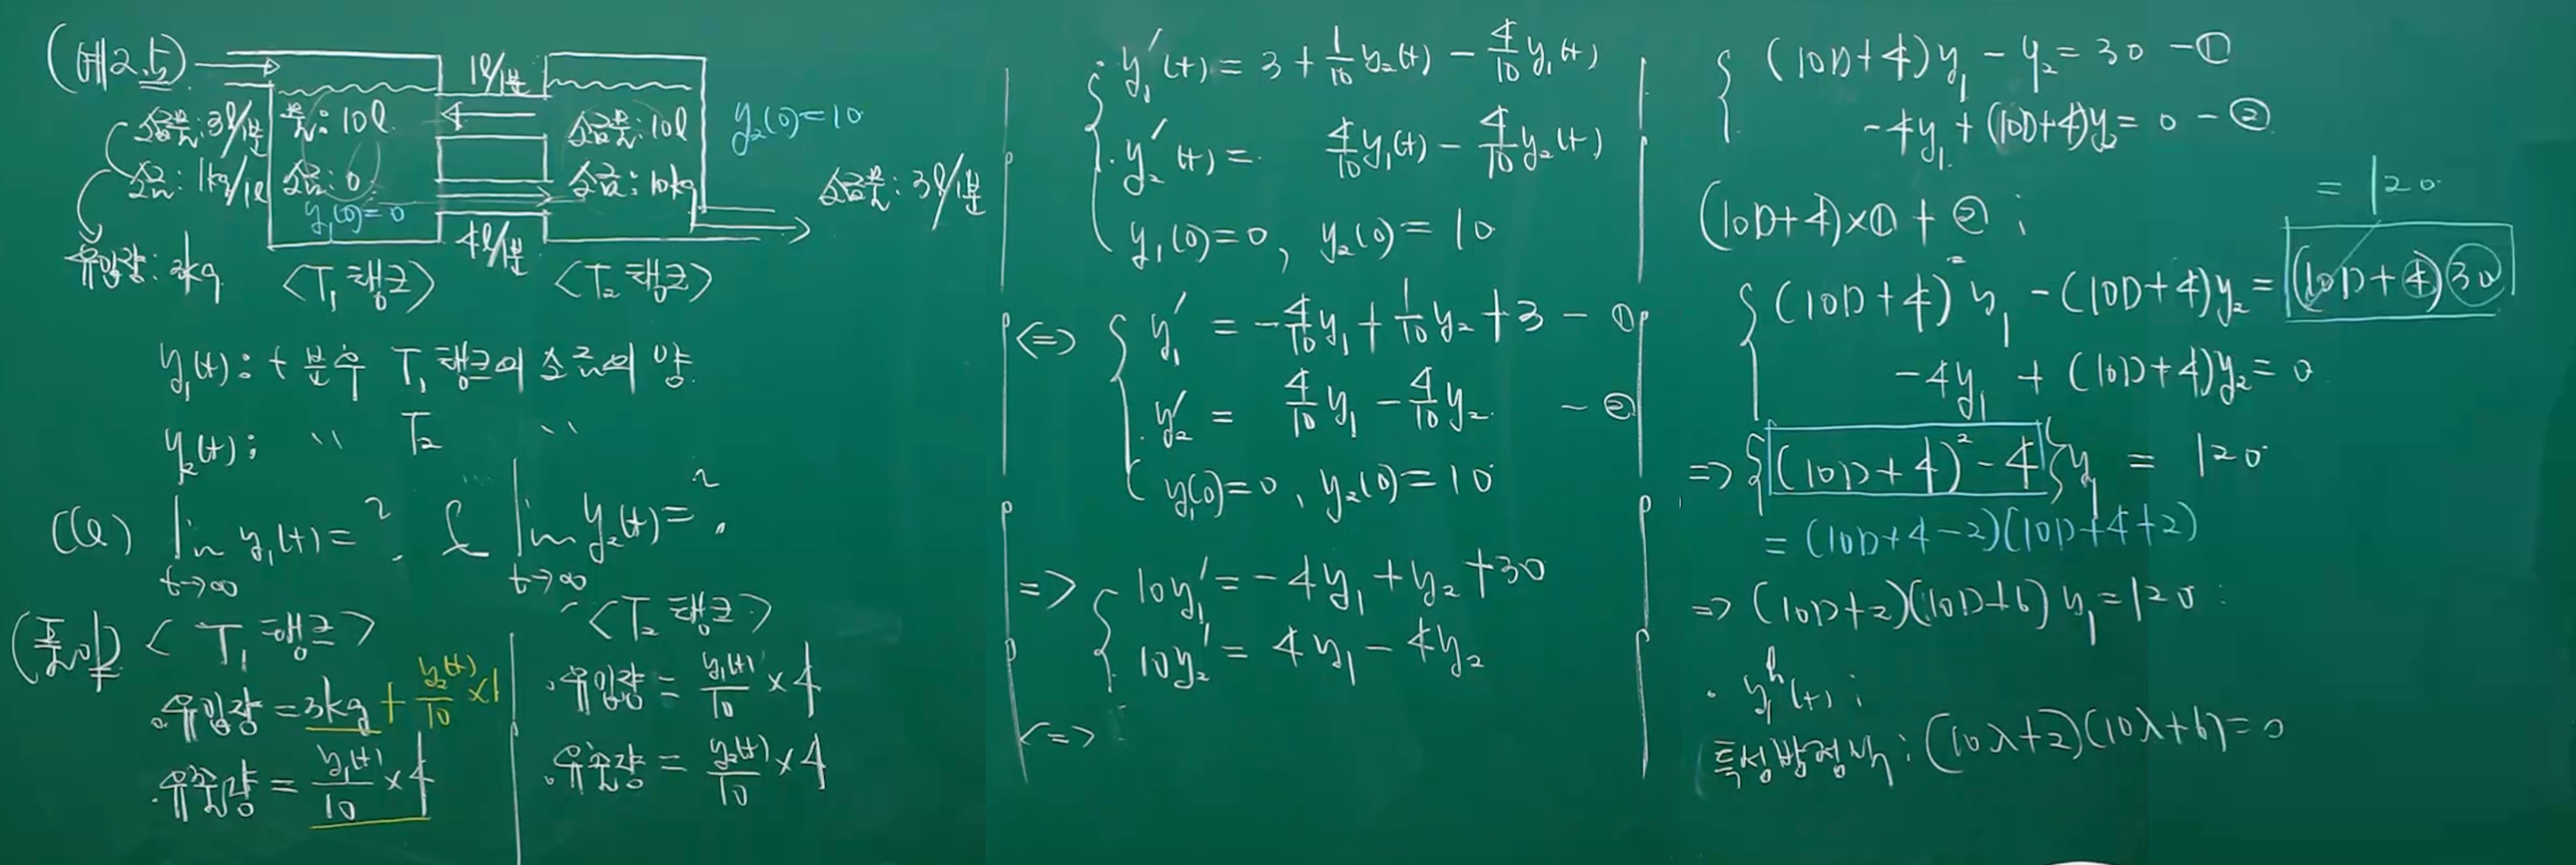 (예2.5)
1ℓ/1분
소금물: 3ℓ/1분
물: 10ℓ
소금물: 10ℓ
y₂(0)=10
소금: 1kg/1ℓ
소금: 0
소금: 10kg
소금물: 3ℓ/1분
y₁(0)=0
4ℓ/1분
유입량: 3kg
<T₁ 탱크>
<T₂ 탱크>
y₁(t): t 분후 T₁ 탱크의 소금의 양
y₂(t): 〃 T₂ 〃
(Q) lim y₁(t)=? & lim y₂(t)=?
t→∞ t→∞
(풀이) <T₁ 탱크>
유입량 = 3kg + y₂(t)/10 × 1
유출량 = y₁(t)/10 × 4
<T₂ 탱크>
유입량 = y₁(t)/10 × 4
유출량 = y₂(t)/10 × 4
y₁′(t) = 3 + 1/10 y₂(t) − 4/10 y₁(t)
y₂′(t) = 4/10 y₁(t) − 4/10 y₂(t)
y₁(0)=0, y₂(0)=10
<=> y₁′ = −4/10 y₁ + 1/10 y₂ + 3 − ①
y₂′ = 4/10 y₁ − 4/10 y₂ − ②
y₁(0)=0, y₂(0)=10
=> 10y₁′ = −4y₁ + y₂ + 30
10y₂′ = 4y₁ − 4y₂
<=>
(10D+4)y₁ − y₂ = 30 − ①
−4y₁ + (10D+4)y₂ = 0 − ②
(10D+4)×① + ② ;
= 120
(10D+4)²y₁ − (10D+4)y₂ = (10D+4)30
−4y₁ + (10D+4)y₂ = 0
=> {(10D+4)²−4}y₁ = 120
= (10D+4−2)(10D+4+2)
=> (10D+2)(10D+6)y₁ = 120
· y₁ʰ(t) ;
특성방정식 : (10λ+2)(10λ+6)=0